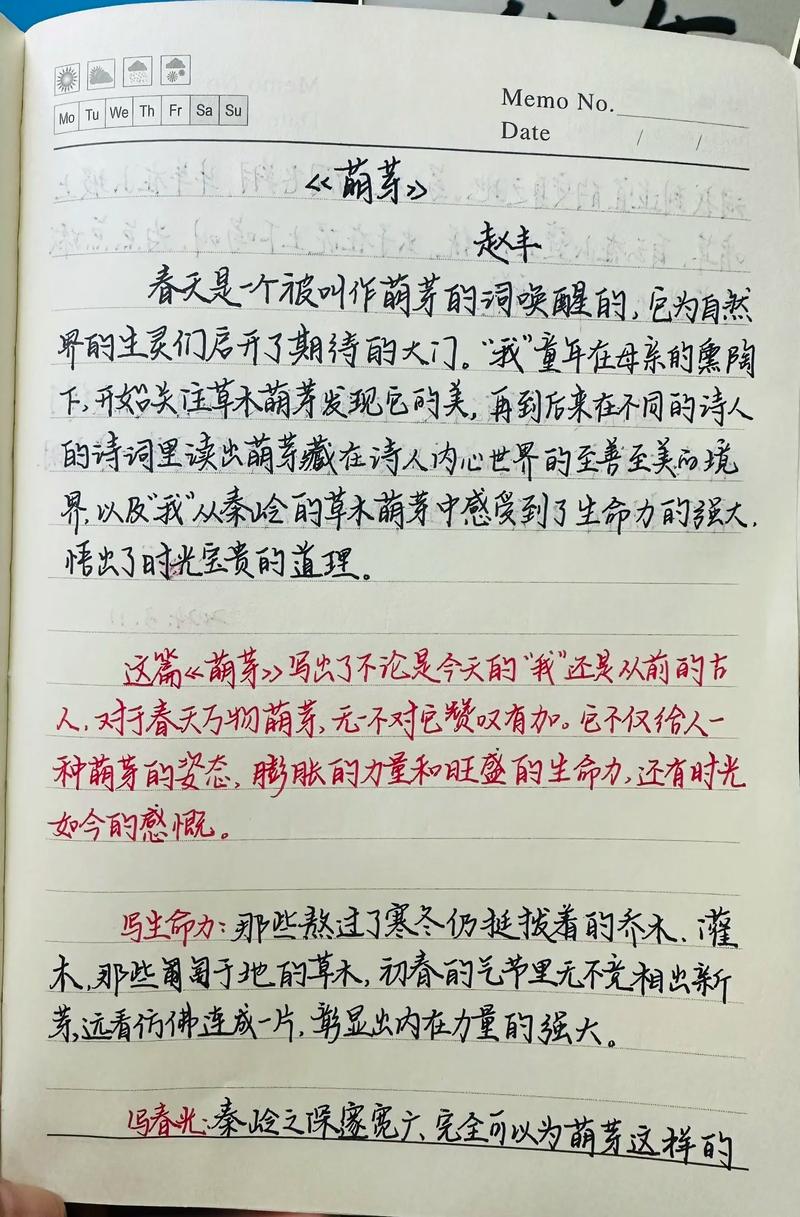 Memo No.
Mo Tu We Th Fr Sa Su
Date / /
《萌芽》
赵丰
春天是一个被叫作萌芽的词唤醒的,它为自然
界的生灵们启开了期待的大门。“我”童年在母亲的熏陶
下,开始关注草木萌芽发现它的美,再到后来在不同的诗人
的诗词里读出萌芽藏在诗人内心世界的至善至美的境
界,以及“我”从秦岭的草木萌芽中感受到了生命力的强大,
悟出了时光宝贵的道理。
这篇《萌芽》写出了不论是今天的“我”还是从前的古
人,对于春天万物萌芽,无一不对它赞叹有加。它不仅给人一
种萌芽的姿态,膨胀的力量和旺盛的生命力,还有时光
如今的感慨。
写生命力:那些熬过了寒冬仍挺拔着的乔木、灌
木,那些匍匐于地的草木,初春的气节里无不竞相出新
芽,远看仿佛连成一片,彰显出内在力量的强大。
写春光:秦岭之深邃宽广、完全可以为萌芽这样的